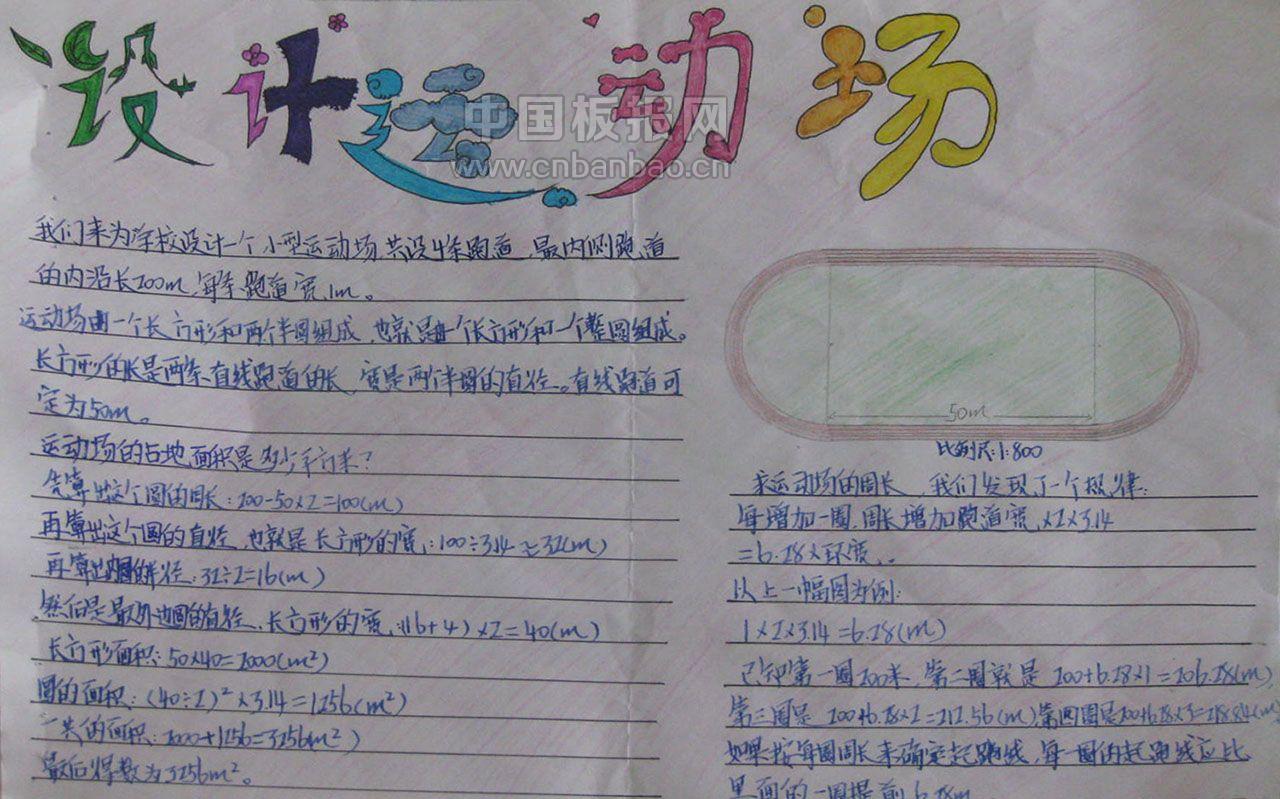 设计运动场
中国板报网
www.cnbanbao.cn
我们来为学校设计一个小型运动场,共设4条跑道,最内侧跑道
的内沿长200m,每条跑道宽1m。
运动场由一个长方形和两个半圆组成,也就是由一个长方形和一个整圆组成。
长方形的长是两条直线跑道的长,宽是两个半圆的直径。直线跑道可
定为50m。
运动场的占地面积是多少平方米?
先算出这个圆的周长:200-50×2=100(m)
再算出这个圆的直径,也就是长方形的宽:100÷3.14≈32(m)
再算出内圆的半径:32÷2=16(m)
然后是最外边圆的直径,长方形的宽:(16+4)×2=40(m)
长方形面积:50×40=2000(m²)
圆的面积:(40÷2)²×3.14=1256(m²)
一共的面积:2000+1256=3256m²)
最后得数为3256m²。
50m
比例尺:1:800
求运动场的周长,我们发现了一个规律:
每增加一圈,周长增加跑道宽×2×3.14
=6.28×环宽。
以上一幅图为例:
1×2×3.14=6.28(m)
已知第一圈200米,第二圈就是200+6.28×1=206.28(m),
第三圈是200+6.28×2=212.56(m),第四圈是200+6.28×3=218.84(m)
如果按每圈周长来确定起跑线,每一圈的起跑线应比
里面的一圈提前6.28m